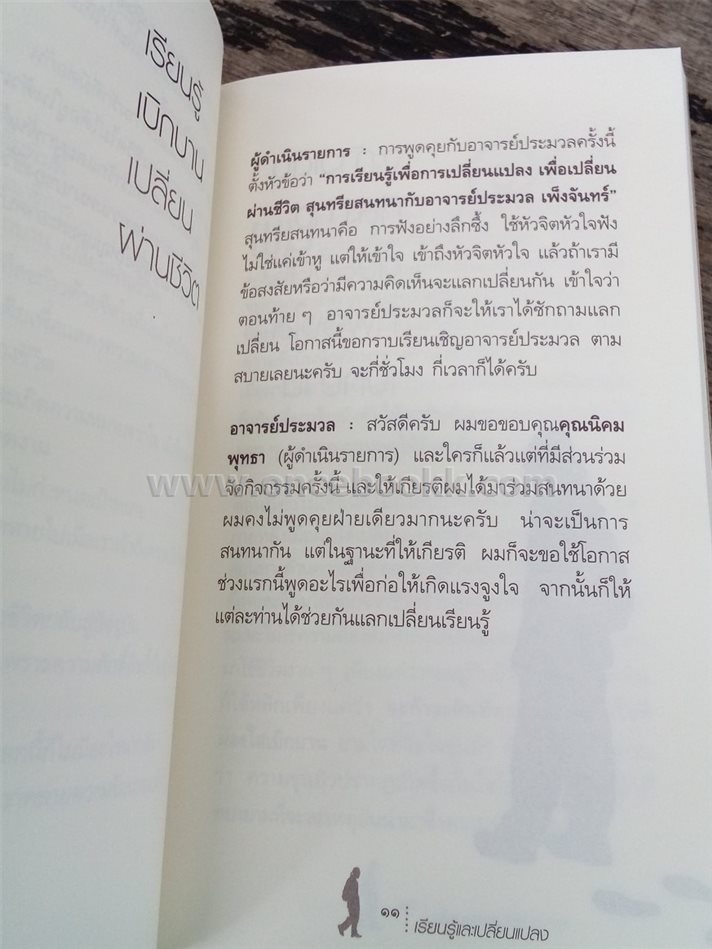 เรียนรู้
เบิกบาน
เปลี่ยน
ผ่านชีวิต
ผู้ดำเนินรายการ : การพูดคุยกับอาจารย์ประมวลครั้งนี้
ตั้งหัวข้อว่า “การเรียนรู้เพื่อการเปลี่ยนแปลง เพื่อเปลี่ยน
ผ่านชีวิต สุนทรียสนทนากับอาจารย์ประมวล เพ็งจันทร์”
สุนทรียสนทนาคือ การฟังอย่างลึกซึ้ง ใช้หัวจิตหัวใจฟัง
ไม่ใช่แค่เข้าหู แต่ให้เข้าใจ เข้าถึงหัวจิตหัวใจ แล้วถ้าเรามี
ข้อสงสัยหรือว่ามีความคิดเห็นจะแลกเปลี่ยนกัน เข้าใจว่า
ตอนท้าย ๆ อาจารย์ประมวลก็จะให้เราได้ซักถามแลก
เปลี่ยน โอกาสนี้ขอกราบเรียนเชิญอาจารย์ประมวล ตาม
สบายเลยนะครับ จะกี่ชั่วโมง กี่เวลาก็ได้ครับ
อาจารย์ประมวล : สวัสดีครับ ผมขอขอบคุณคุณนิคม
พุทธา (ผู้ดำเนินรายการ) และใครก็แล้วแต่ที่มีส่วนร่วม
จัดกิจกรรมครั้งนี้ และให้เกียรติผมได้มาร่วมสนทนาด้วย
ผมคงไม่พูดคุยฝ่ายเดียวมากนะครับ น่าจะเป็นการ
สนทนากัน แต่ในฐานะที่ให้เกียรติ ผมก็จะขอใช้โอกาส
ช่วงแรกนี้พูดอะไรเพื่อก่อให้เกิดแรงจูงใจ จากนั้นก็ให้
แต่ละท่านได้ช่วยกันแลกเปลี่ยนเรียนรู้
www.onceebookk.com
๑๑ เรียนรู้และเปลี่ยนแปลง